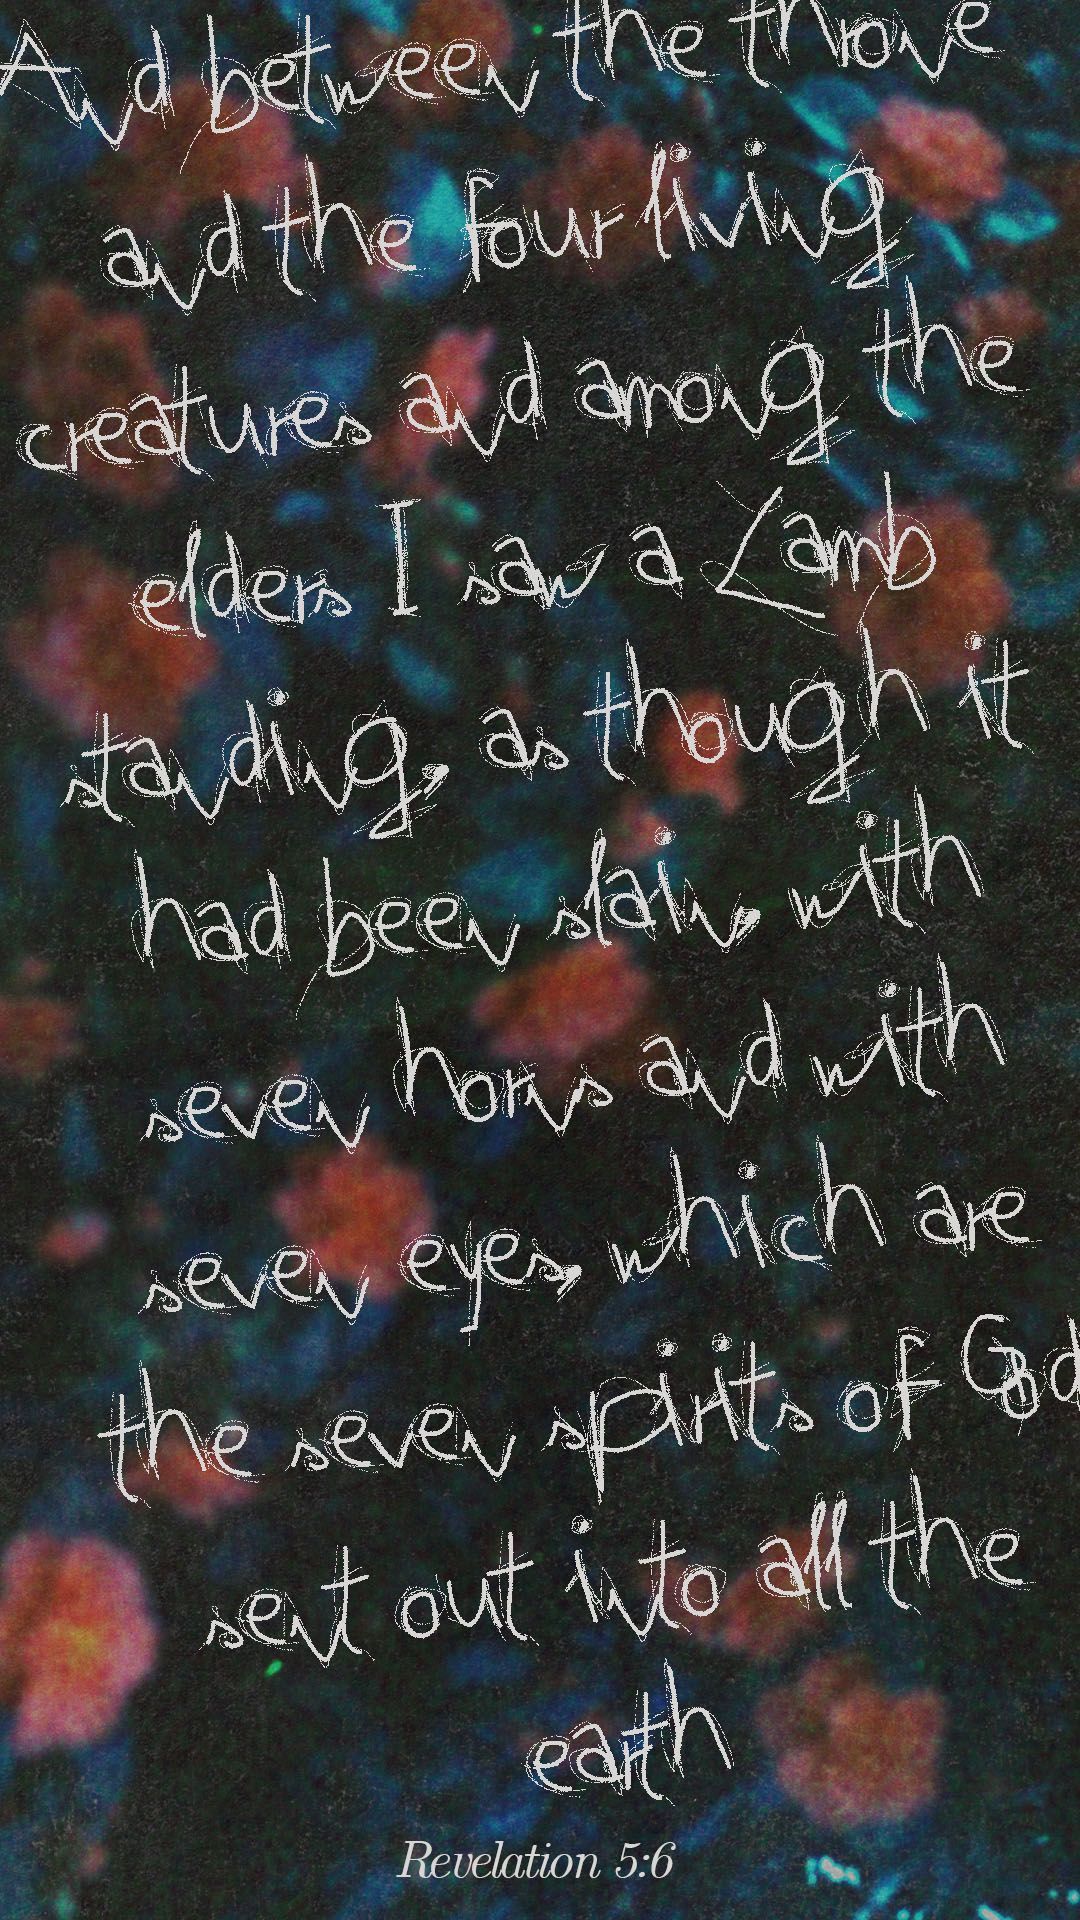 And between the throne
and the four living
creatures and among the
elders I saw a Lamb
standing, as though it
had been slain, with
seven horns and with
seven eyes, which are
the seven spirits of God
sent out into all the
earth
Revelation 5:6